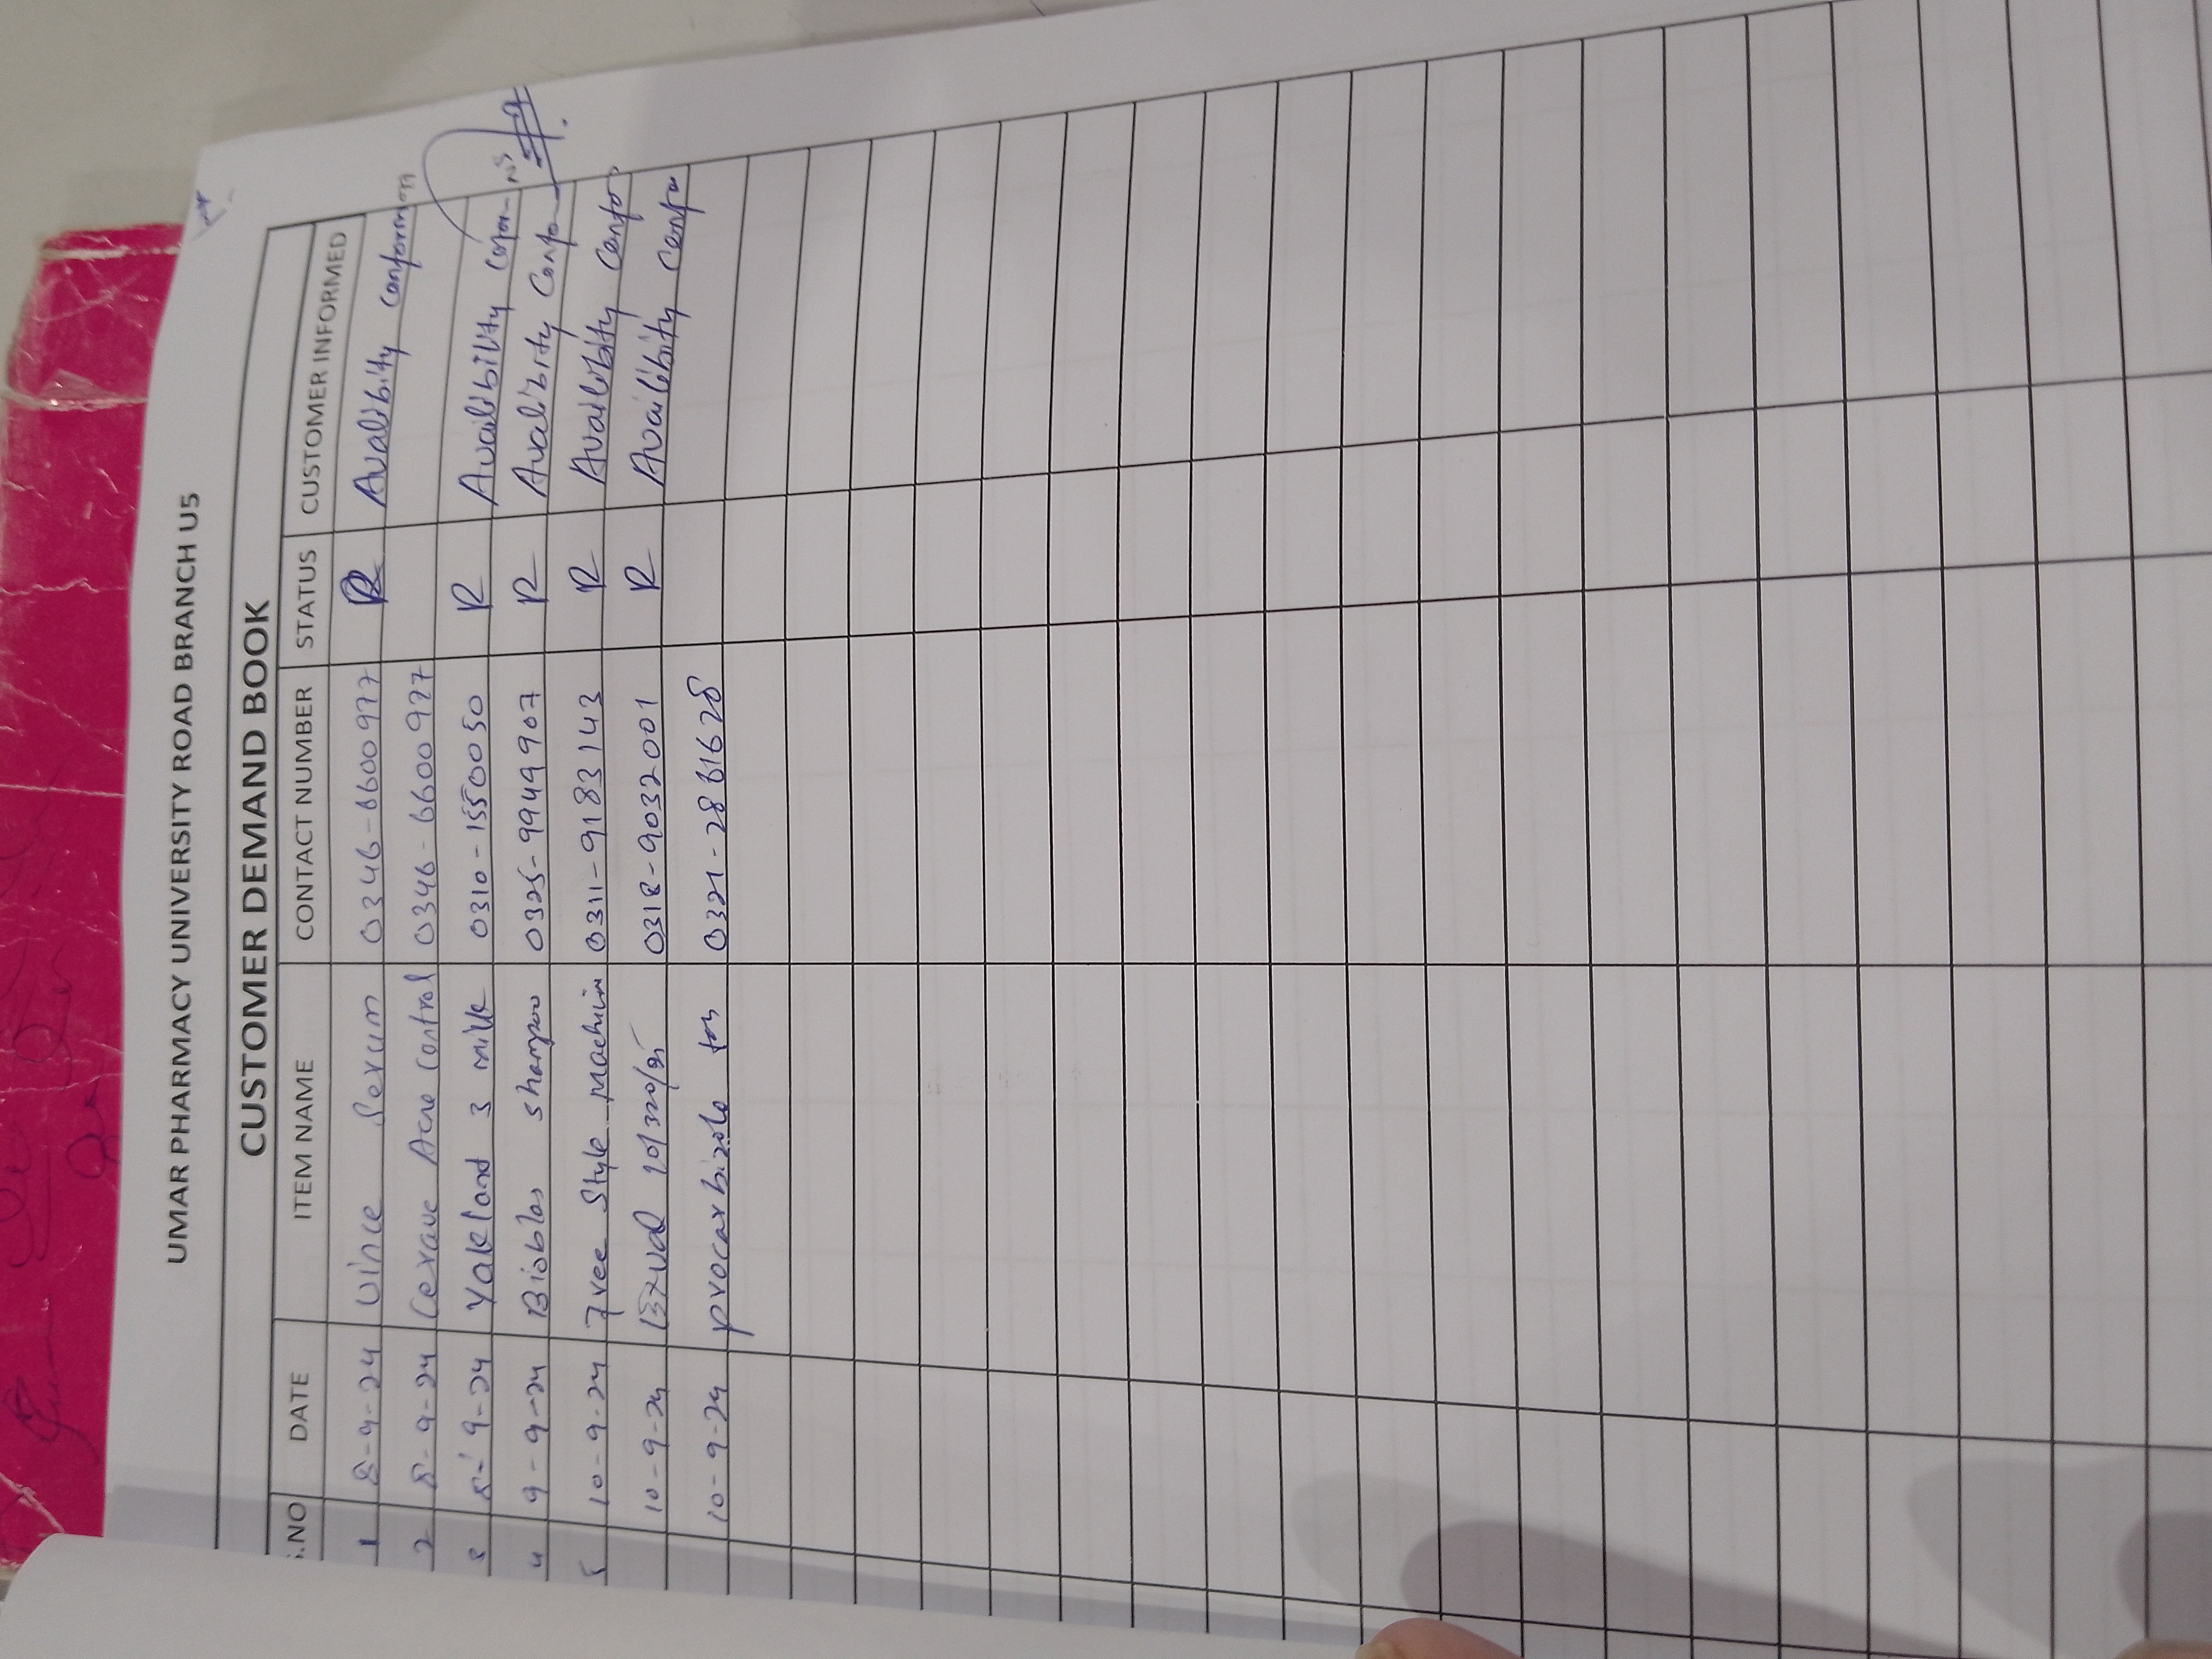 UMAR PHARMACY UNIVERSITY ROAD BRANCH U5
CUSTOMER DEMAND BOOK
S.NO DATE ITEM NAME CONTACT NUMBER STATUS CUSTOMER INFORMED
1 8-9-24 Vince Serum 0346-6600977 R Avalibity Conformom
2 8-9-24 Cerave Acne Control 0346-6600977
3 8-9-24 Yakland 3 milk 0310-1550050 R Availibility
4 9-9-24 Bioblas Shampoo 0325-9949907 R Avalibity Confo
5 10-9-24 Free Style machin 0311-9183143 R Availibity Confor
10-9-24 0318-9032001 R Availibity Confo
10-9-24 procarbizole 0321-2881628